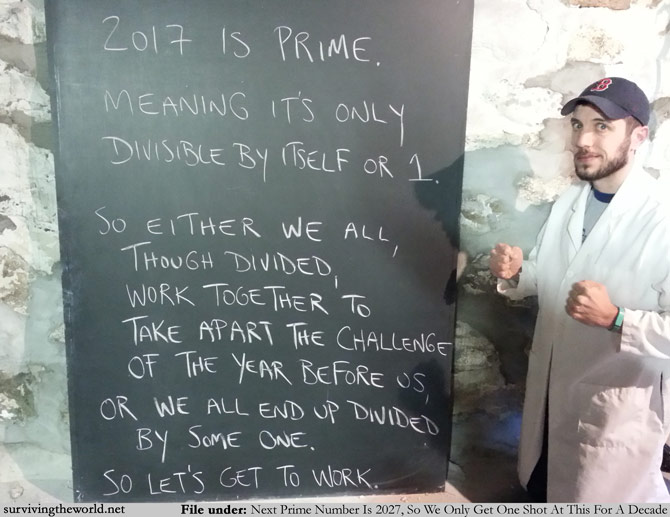 2017 IS PRIME.
MEANING IT'S ONLY
DIVISIBLE BY ITSELF OR 1.
SO EITHER WE ALL,
THOUGH DIVIDED,
WORK TOGETHER TO
TAKE APART THE CHALLENGE
OF THE YEAR BEFORE US,
OR WE ALL END UP DIVIDED
BY SOME ONE.
SO LET'S GET TO WORK.
B
survivingtheworld.net File under: Next Prime Number Is 2027, So We Only Get One Shot At This For A Decade